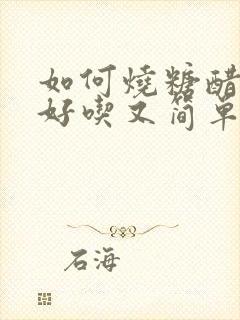 如何燒糖醋
好喫又简单
石海